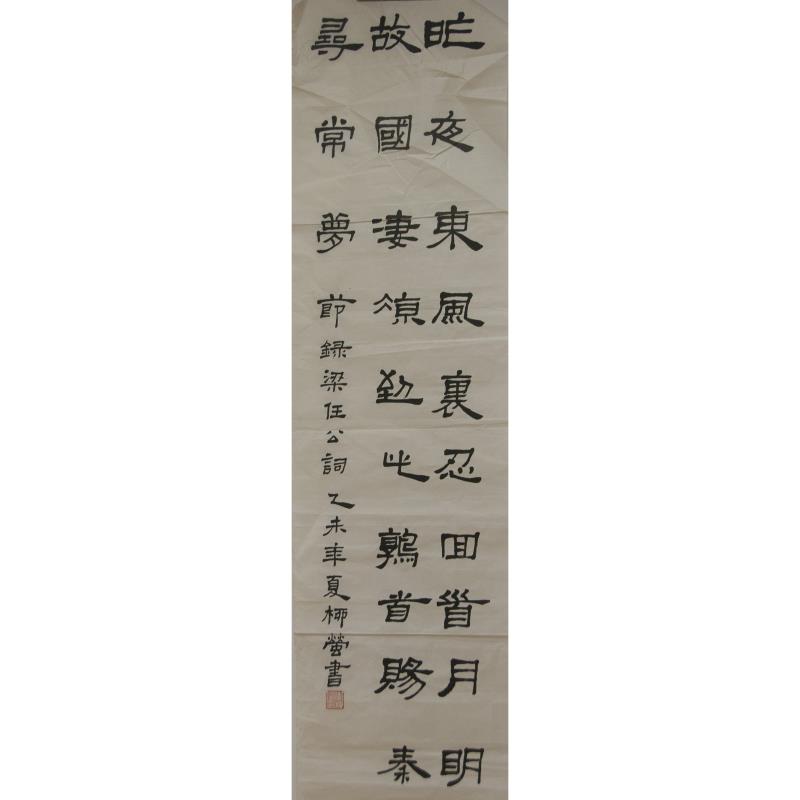 昨夜東風裏忍回首月明
故國淒凉到此鶉首賜秦
尋常夢節録梁任公詞乙未年夏柳螢書